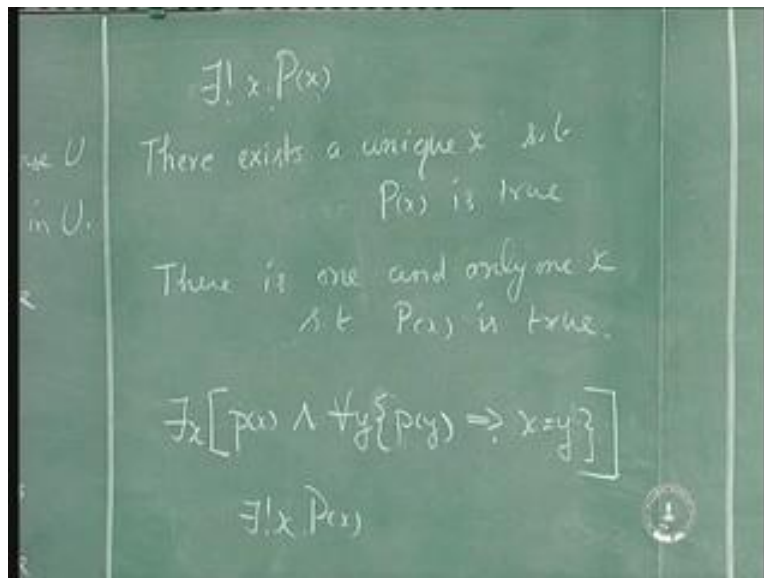 ∃! x P(x)
U There exists a unique x s.t
P(x) is true
in U.
There is one and only one x
s.t P(x) is true.
∃x[p(x) ∧ ∀y{p(y) ⇒ x=y}]
∃!x P(x)